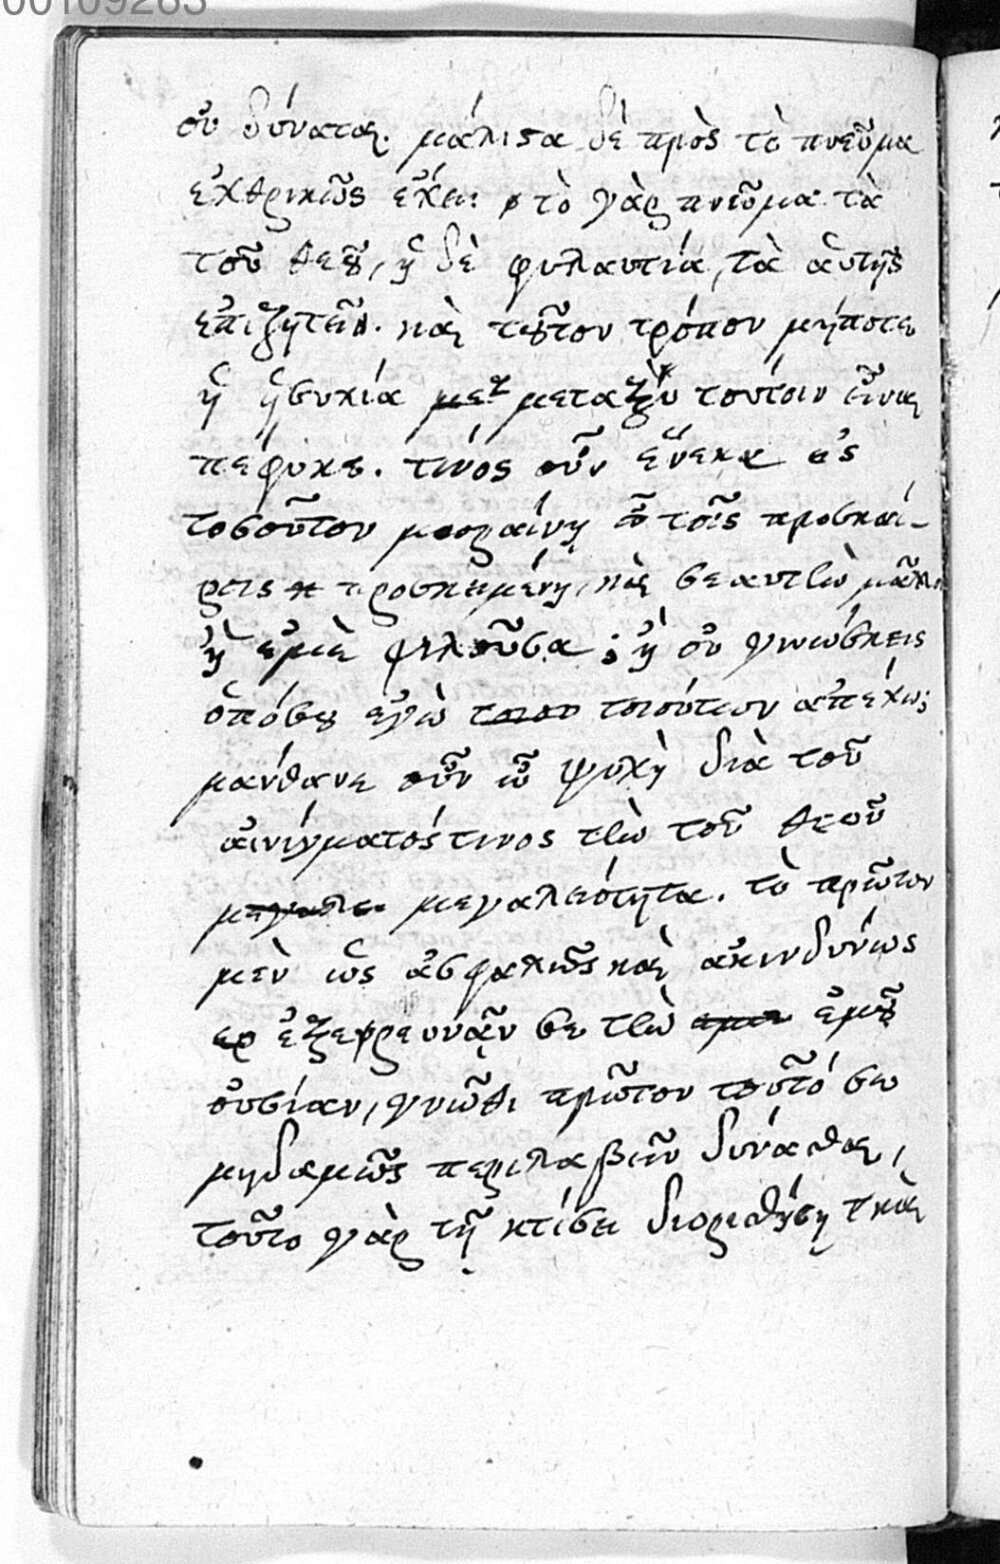 00109283
οὐ δύναται. μάλιστα δὲ πρὸς τὸ πνεῦμα
ἐχθρικῶς ἔχει· τὸ γὰρ πνεῦμα τὰ
τοῦ θεοῦ, ἡ δὲ φιλαυτία, τὰ αὑτῆς
ἐπιζητεῖ. καὶ τοῦτον τρόπον μήποτε
ἡ ἡσυχία μετ μεταξὺ τούτοιν εἶναι
πέφυκε. τίνος οὖν ἕνεκα εἰς
τοσοῦτον μωραίνῃ ἐν τοῖς προσκαί-
ροις προσκειμένη, καὶ σεαυτὴν μᾶλλον
ἢ ἐμὲ φιλοῦσα; ἢ οὐ γινώσκεις
ὁπόσου ἐγὼ τοιού τοιούτων ἀπέχω;
μάνθανε οὖν ὦ ψυχὴ διὰ τοῦ
αἰνίγματός τινος τὴν τοῦ θεοῦ
μεγαλει μεγαλειότητα. τὸ πρῶτον
μὲν ὡς ἀσφαλῶς καὶ ἀκινδύνως
ερ ἐξερευνᾷν σε τὴν εμου ἐμοῦ
οὐσίαν, γνῶθι πρῶτον τοῦτό σε
μηδαμῶς περιλαβεῖν δύνασθαι,
τοῦτο γὰρ τῇ κτίσει διορισθήσῃ καὶ